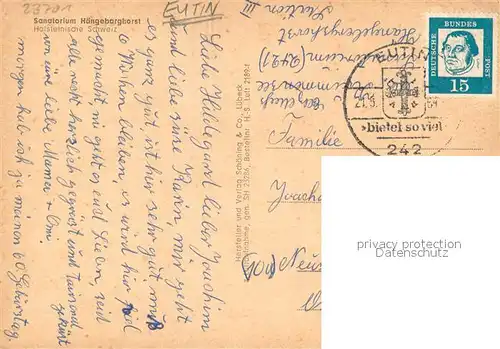 23701
EUTIN
Sanatorium Hängebargborst
Holsteinische Schweiz
Liebe Hildegard lieber Joachim
und liebe süsse Karin, mir geht
es ganz gut ist hier sehr gut, muß
6 Wochen bleiben es wird hier viel
gemacht, wie geht es euch Lieben, seid
alle recht herzlich gegrüsst und Tausend
geküsst
von eure liebe Mama + Omi.
morgen hab ich ja meinen 60 Geburtstag.
Hersteller und Verlag Schöning & Co., Lübeck
Luftaufnahme, gen. SH 23236, Bestellnr. H.-S. Luft 21894
Station III
Sanatorium (2421)
Familie
Joach
EUTIN
»bietet so viel
242
DEUTSCHE
BUNDES
POST
15
privacy protection
Datenschutz